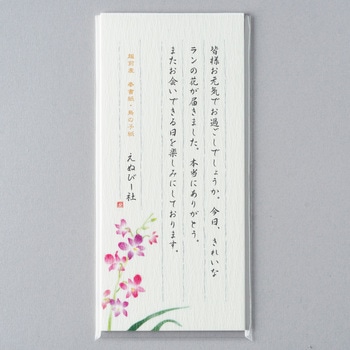 皆様お元気でお過ごしでしょうか。今日、きれいな
ランの花が届きました。本当にありがとう。
またお会いできる日を楽しみにしております。
えぬびー社